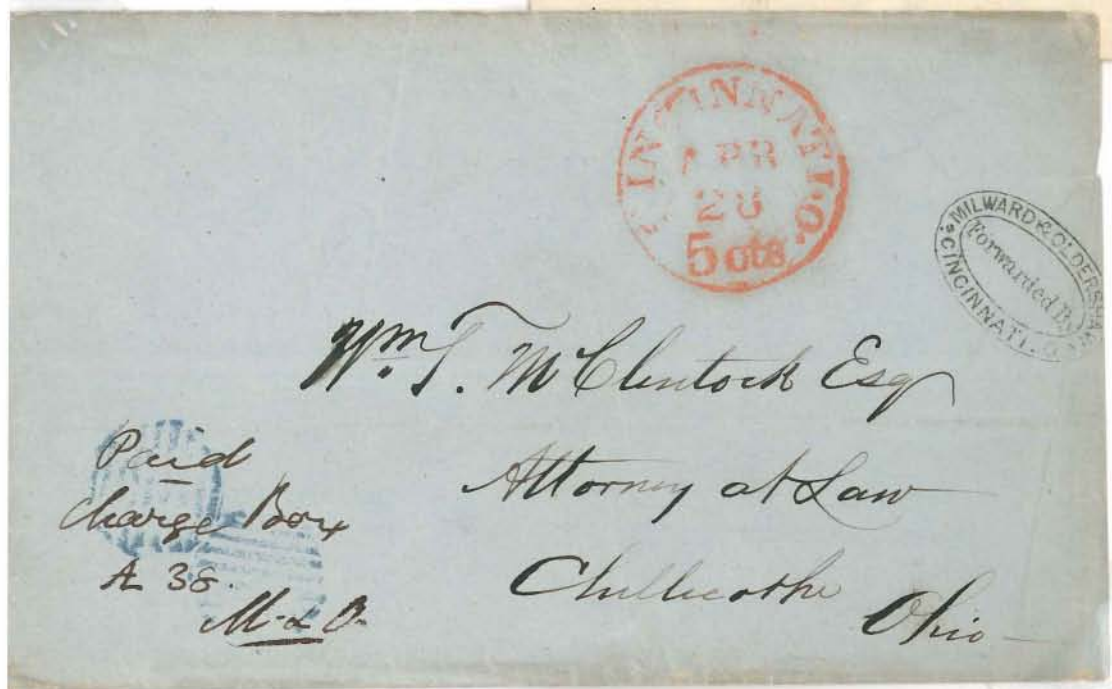 CINCINNATI. O.
APR
28
5 cts
MILWARD & OLDERSHAW
Forwarded By
CINCINNATI. O.
Wm. T. McClintock Esq
Attorney at Law
Chillicothe
Ohio
Paid
Charge Box
A 38.
M & O.